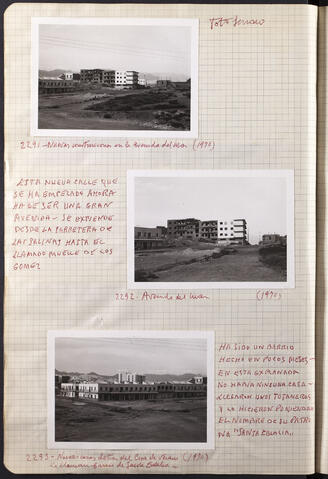 Foto
2291 - Nuevas construcciones en la Avenida del Mar (1970)
ESTA NUEVA CALLE QUE
SE HA EMPEZADO AHORA
HA DE SER UNA GRAN
AVENIDA - SE EXTIENDE
DESDE LA CARRETERA DE
LAS SALINAS HASTA EL
LLAMADO MUELLE DE LOS
GOMEZ
2292 - Avenida del Mar (1970)
HA SIDO UN BARRIO
HECHO EN POCOS MESES -
EN ESTA EXPLANADA
NO HABIA NINGUNA CASA -
LLEGARON UNOS TOTANEROS
Y LO HICIERON PONIENDO
EL NOMBRE DE SU PATRO
NA "SANTA EULALIA"
2293 - Nuevas casas detras del Cine de Verano (1970)
Le llaman Barrio de Santa Eulalia